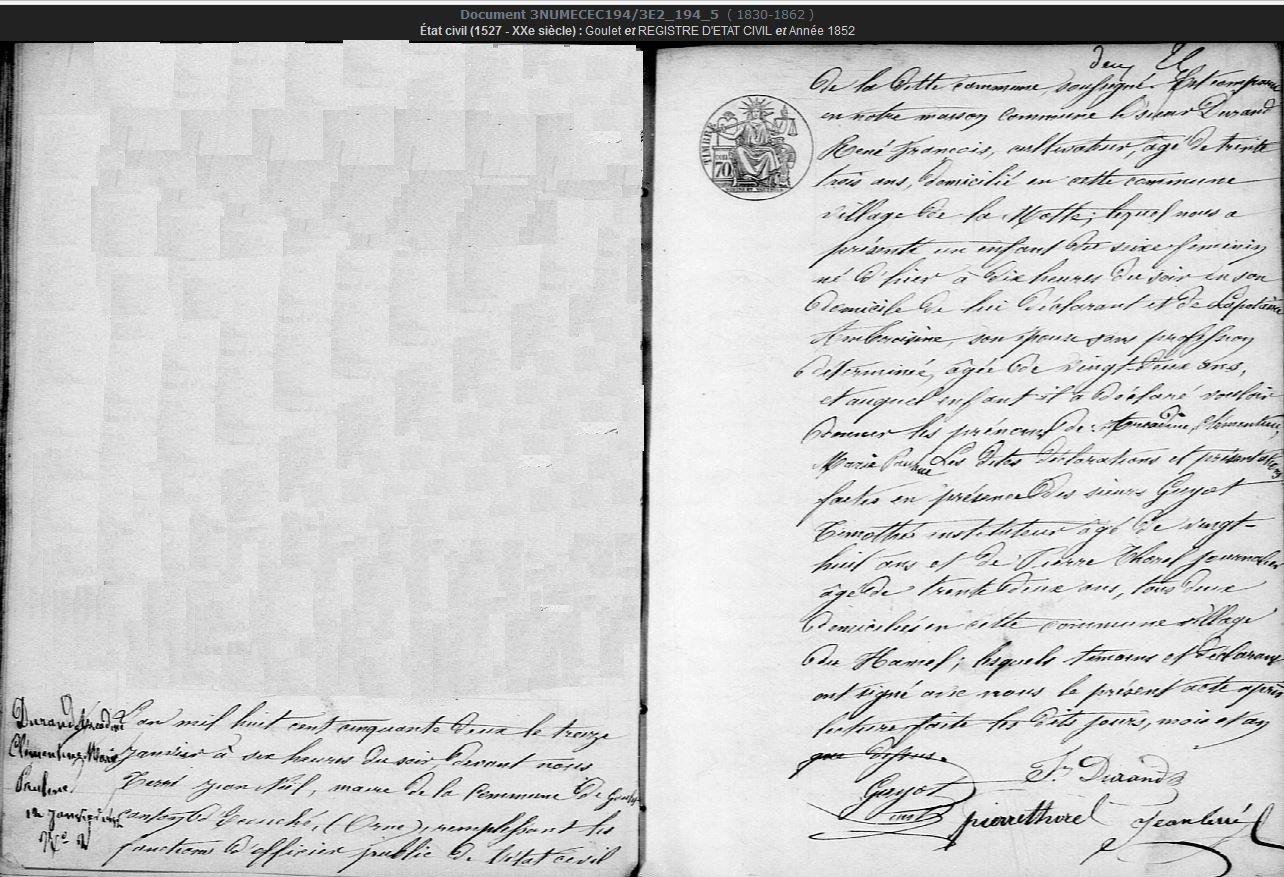 Document 3NUMECEC194/3E2_194_5 ( 1830-1862 )
État civil (1527 - XXe siècle) : Goulet et REGISTRE D'ETAT CIVIL et Année 1852
Durand Arcadine
Clémentine, Marie
Pauline
12 janvier 1852
N° 2
L'an mil huit cent cinquante deux le treize
janvier à six heures du soir devant nous
Terré Jean Nil, maire de la Commune de Goulet
canton d'Ecouché, (Orne), remplissant les
fonctions d'officier public de l'état civil
TIMBRE
70
de la ditte commune soussigné. Est comparu
en notre maison commune le sieur Durand
René françois, cultivateur, âgé de trente
trois ans, domicilié en cette commune
village de la Motte; lequel nous a
présenté un enfant du sixe feminin
né d'hier à dix heures du soir en son
domicile de lui déclarant et de
Ambroisine, son épouse sans profession
déterminée, âgée de vingt-deux ans,
et auquel enfant il a déclaré vouloir
donner les prénoms de Arcadine, Clémentine,
Marie Pauline Les dites déclarations et présentations
faites en présence des sieurs Guyot
Timothée instituteur âgé de vingt-
huit ans et de Pierre Thorel journalier
âgé de trente deux ans, tous deux
domiciliés en cette commune village
du Hamel; lesquels témoins et déclarant
ont signé avec nous le présent acte après
lecture faite les dits jours, mois et an
que dessus.
Guyot
inst
fr Durand
pierre thorel
Jean terré